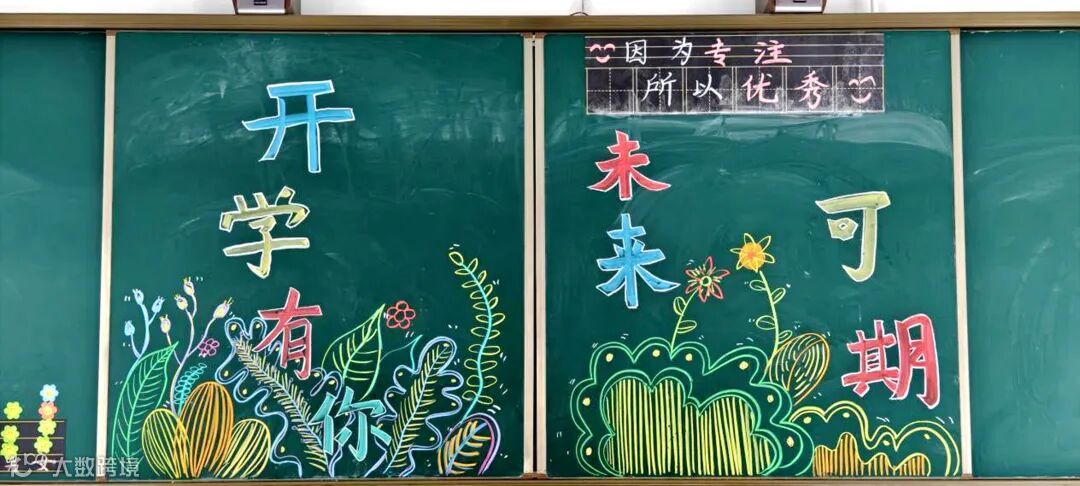 因为专注
所以优秀
开学有你
未来可期
大数跨境